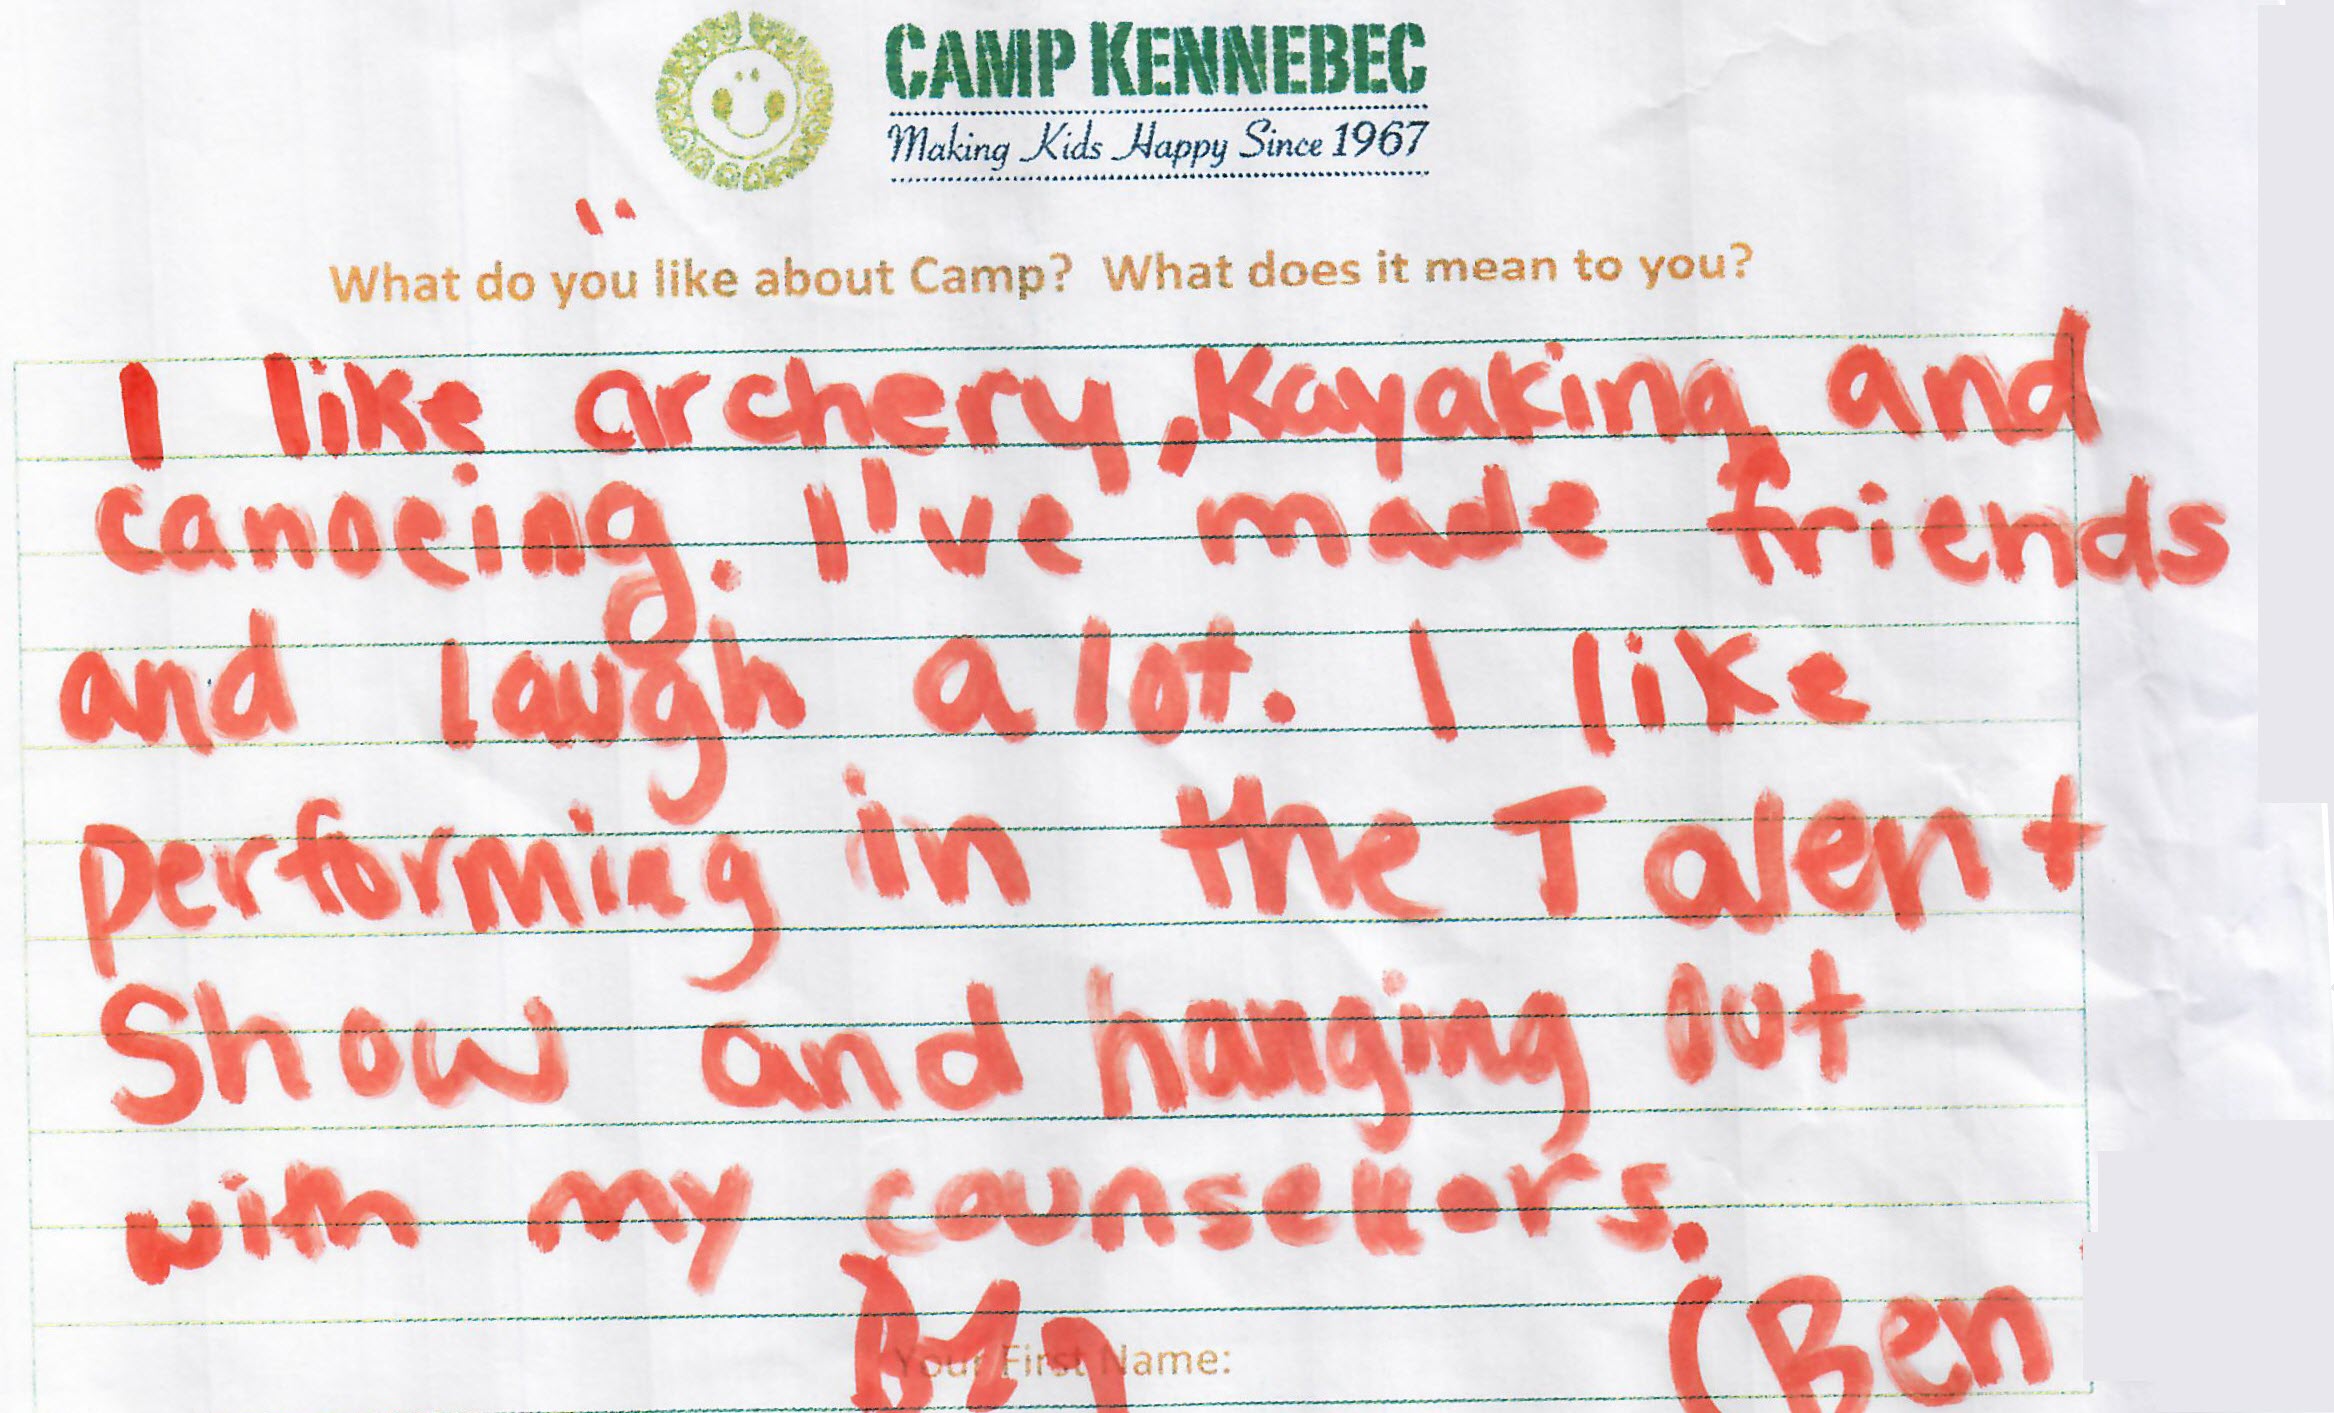 CAMP KENNEBEC
Making Kids Happy Since 1967
What do you like about Camp? What does it mean to you?
I like archery, Kayaking and
canoeing. I've made friends
and laugh a lot. I like
performing in the Talent
Show and hanging out
with my counsellors.
Your First Name:
(Ben